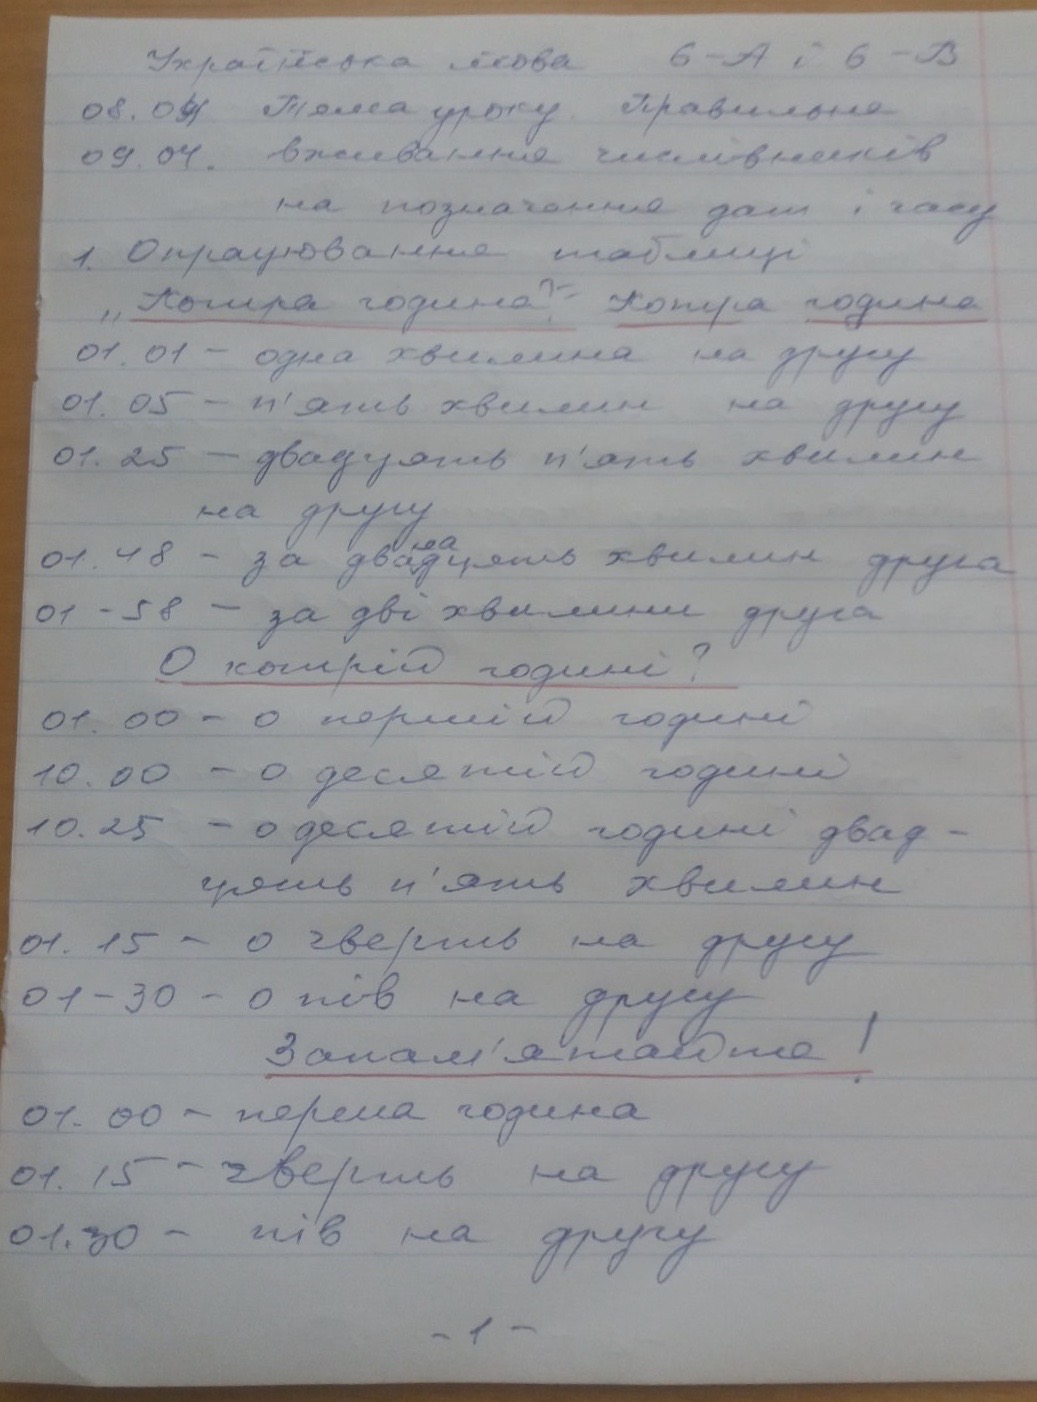 Українська мова 6-А і 6-В
08.04 Тема уроку. Правильне
09.04. вживання числівників
на позначення дат і часу
1. Опрацювання таблиці
„Котра година?" Котра година
01.01 - одна хвилина на другу
01.05 - п'ять хвилин на другу
01.25 - двадцять п'ять хвилин
на другу
01.48 - за дванадцять хвилин друга
01-58 - за дві хвилини друга
О котрій годині?
01.00 - о першій годині
10.00 - о десятій годині
10.25 - о десятій годині двад-
цять п'ять хвилин
01.15 - о чверть на другу
01-30 - о пів на другу
Запам'ятайте!
01.00 - перша година
01.15 - чверть на другу
01.30 - пів на другу
- 1 -